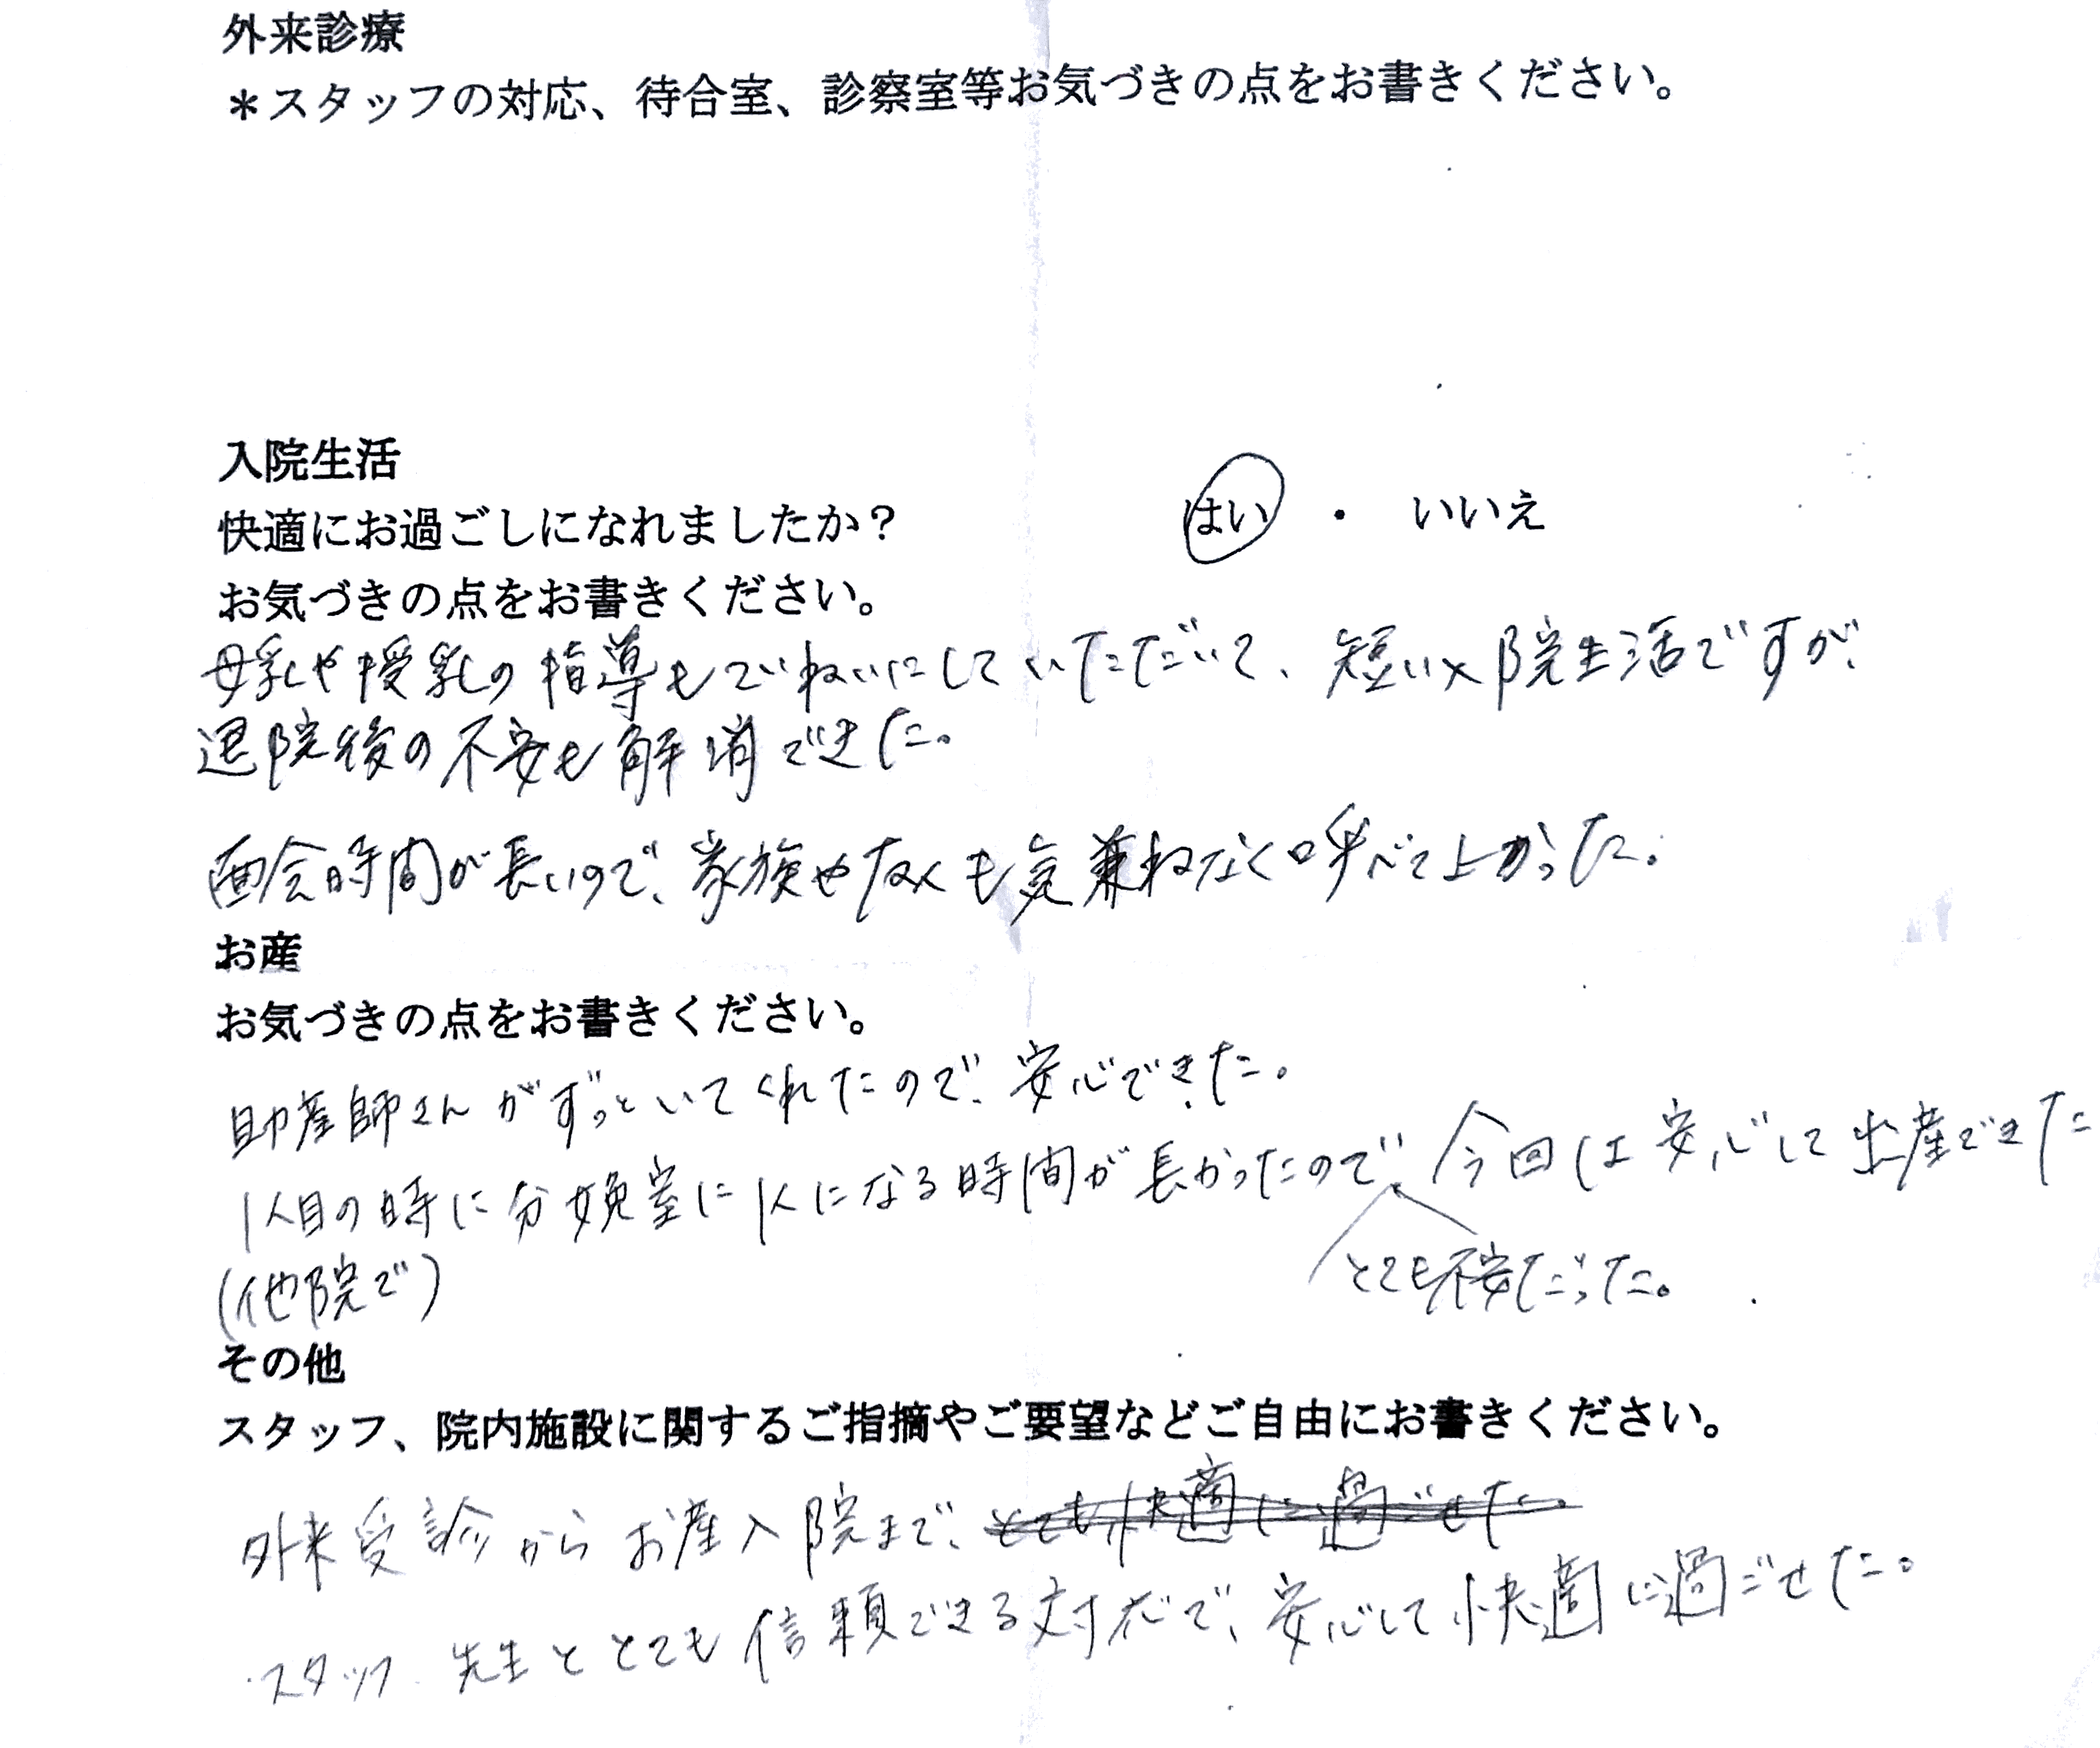 外来診療
＊スタッフの対応、待合室、診察室等お気づきの点をお書きください。
入院生活
快適にお過ごしになれましたか？ はい ・ いいえ
お気づきの点をお書きください。
母乳や授乳の指導もていねいにしていただいて、短い入院生活ですが、
退院後の不安も解消できた。
面会時間が長いので、家族や友人も気兼ねなく呼べてよかった。
お産
お気づきの点をお書きください。
助産師さんがずっといてくれたので、安心できた。
1人目の時に分娩室に1人になる時間が長かったので、今回は安心して出産できた
とても不安だった。
(他院で)
その他
スタッフ、院内施設に関するご指摘やご要望などご自由にお書きください。
外来受診からお産入院まで、とても快適に過ごせた。
・スタッフ、先生ととても信頼できる対応で、安心して快適に過ごせた。